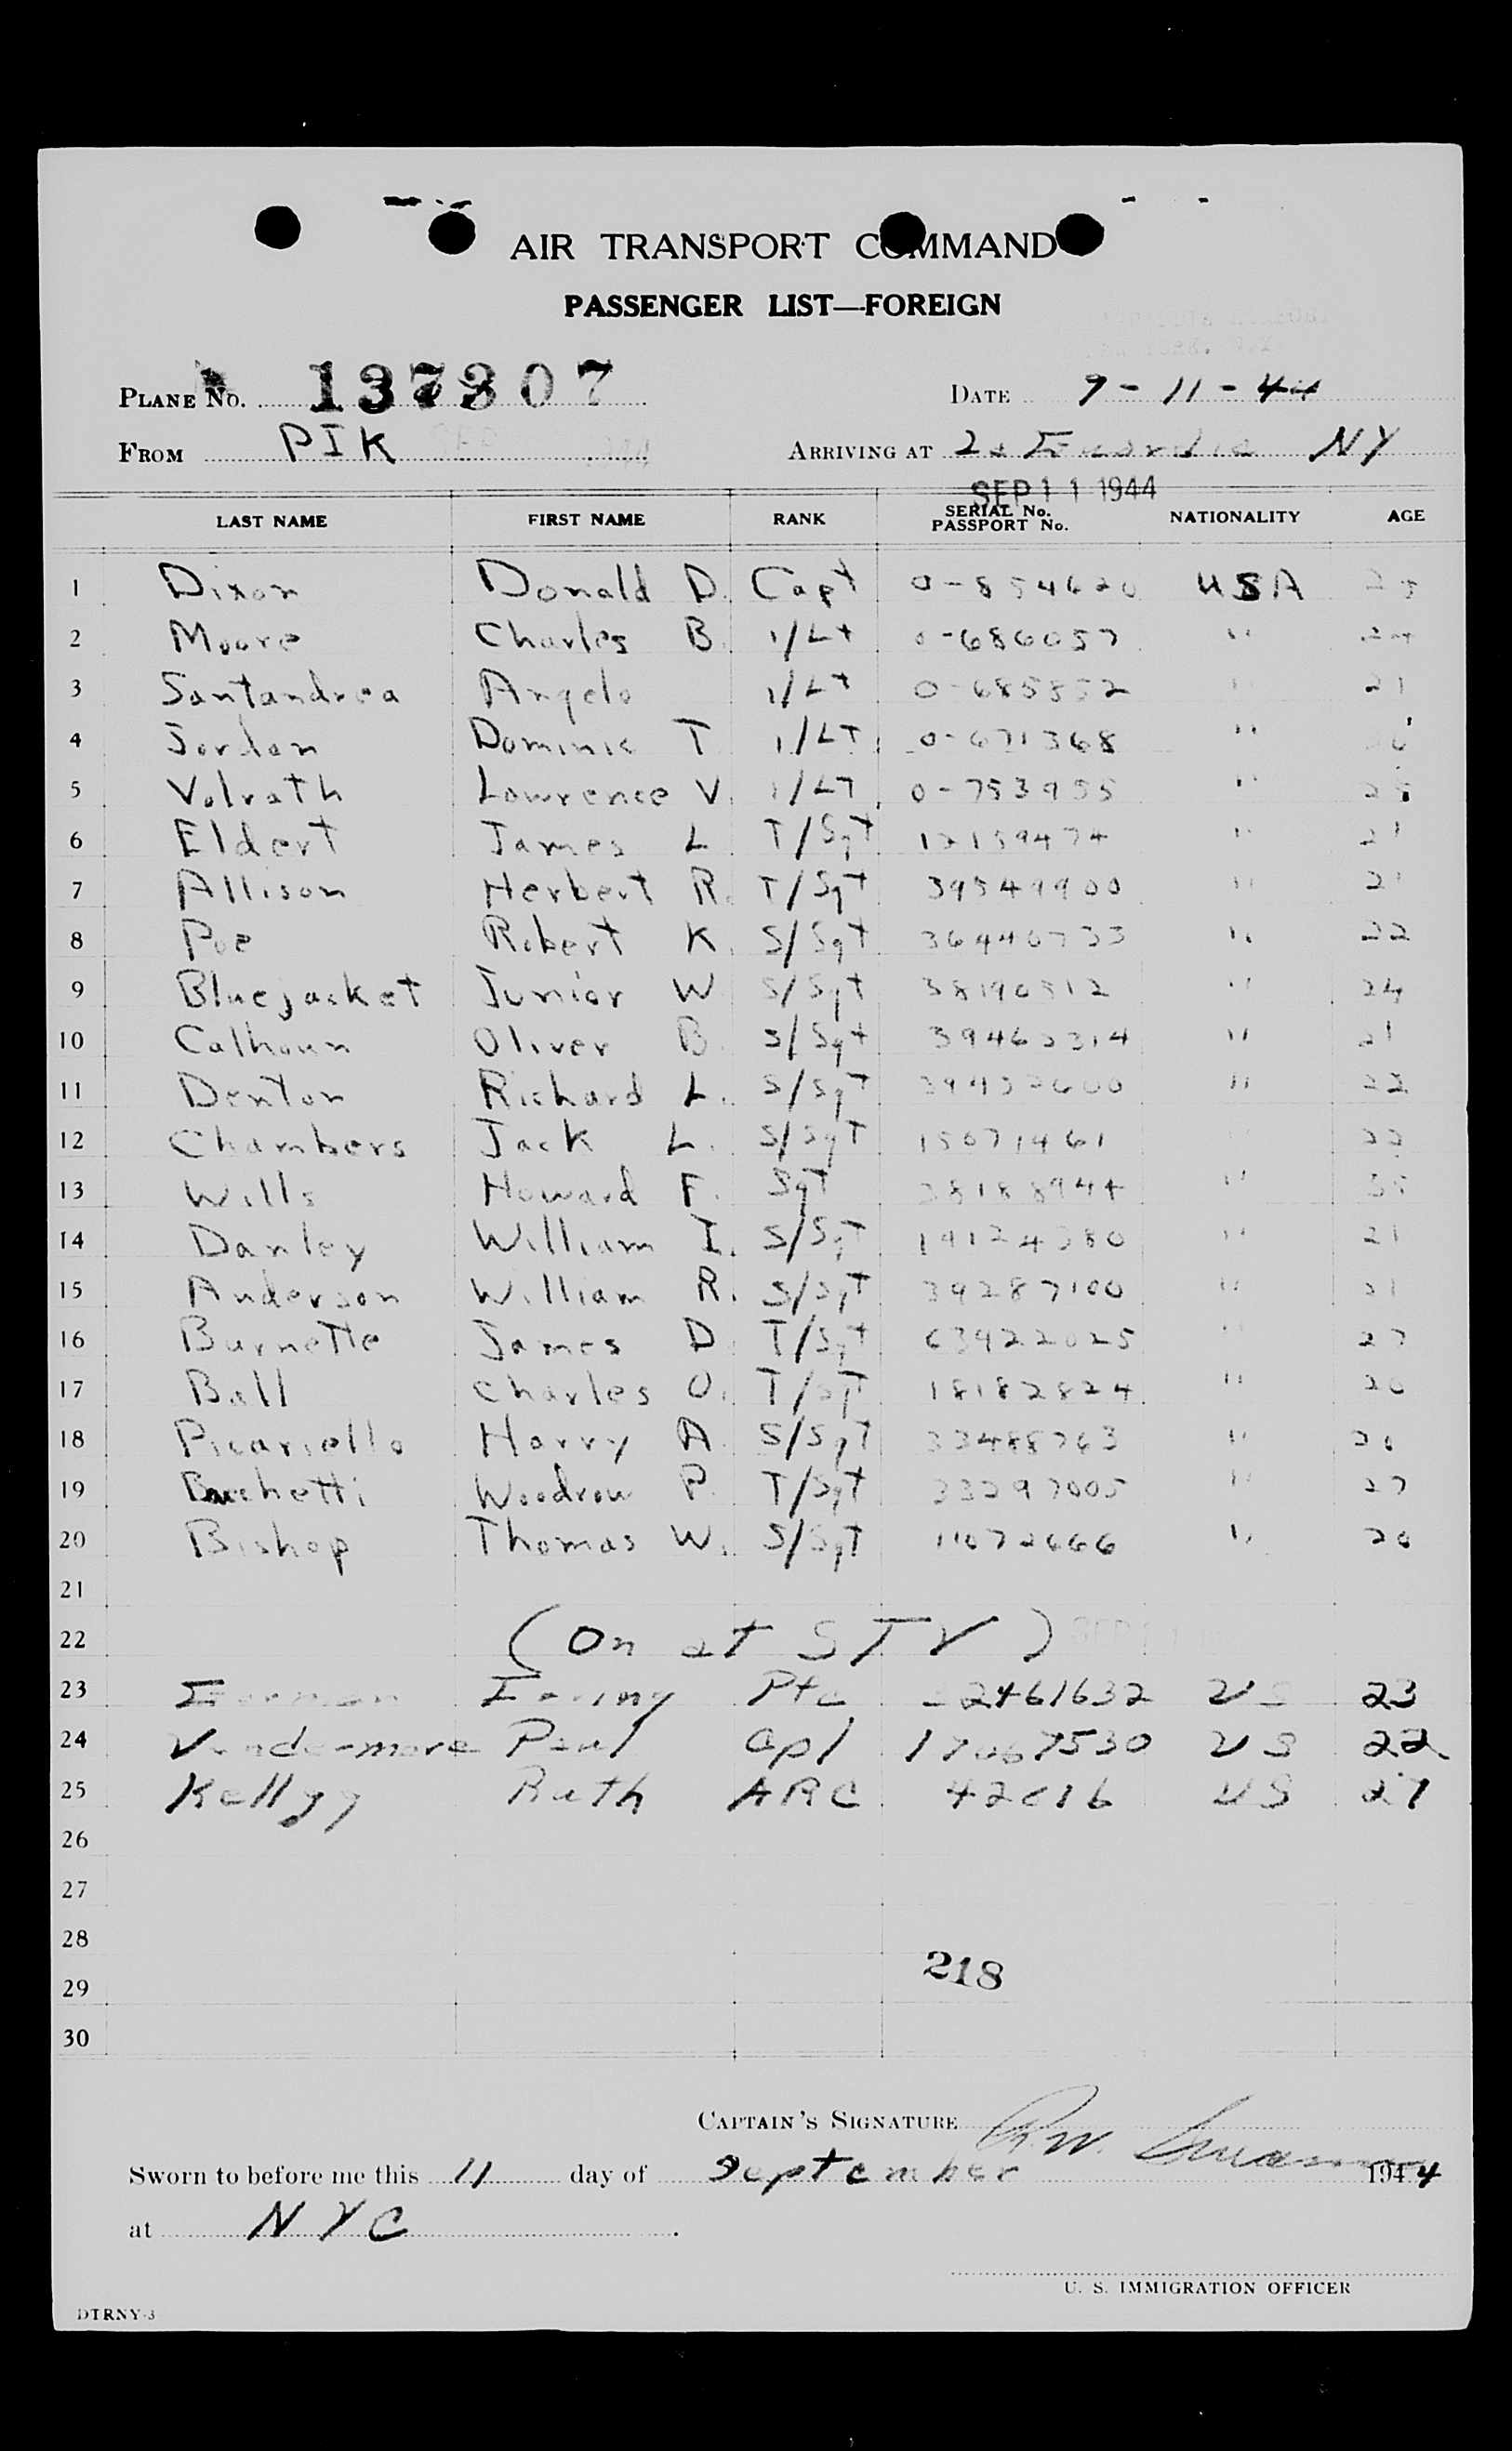 AIR TRANSPORT COMMAND
PASSENGER LIST—FOREIGN
PLANE No. 137307 DATE 9-11-44
FROM PIK ARRIVING AT La Guardia NY
SEP 11 1944
LAST NAME FIRST NAME RANK SERIAL No. PASSPORT No. NATIONALITY AGE
1 Dixon Donald D. Capt 0-854620 USA
2 Moore Charles B. 1/Lt 0-686057 " 24
3 Santandrea Angelo 1/Lt 0-685852 " 21
4 Jordan Dominic T 1/LT 0-671368 "
5 Volrath Lawrence V. 1/LT 0-753955 "
6 Eldert James L T/Sgt 12159474 " 21
7 Allison Herbert R. T/Sgt 39549900 " 21
8 Poe Robert K. S/Sgt 36440733 " 22
9 Bluejacket Junior W S/Sgt 38190512 " 24
10 Calhoun Oliver B. S/Sgt 39462314 " 21
11 Denton Richard L. S/Sgt 39432600 " 22
12 Chambers Jack L. S/SgT 15071461 22
13 Wills Howard F. SgT 38188944 "
14 Danley William I. S/SgT 19124380 " 21
15 Anderson William R. S/SgT 39287100 " 21
16 Burnette James D. T/Sgt 63922025 " 27
17 Ball Charles O. T/SgT 18182824 " 20
18 Picariello Harry A. S/SgT 33488763 " 20
19 Woodrow P. T/Sgt 33297005 " 27
20 Bishop Thomas W. S/SgT 11072666 " 20
21
22 (On at STV)
23 Pfc 2461632 US 23
24 Vandermore Paul Cpl 17067530 US 22
25 Kellogg Ruth ARC 42016 US 27
26
27
28
218
29
30
CAPTAIN'S SIGNATURE
Sworn to before me this 11 day of September 1944
at NYC
U. S. IMMIGRATION OFFICER
DTRNY-3